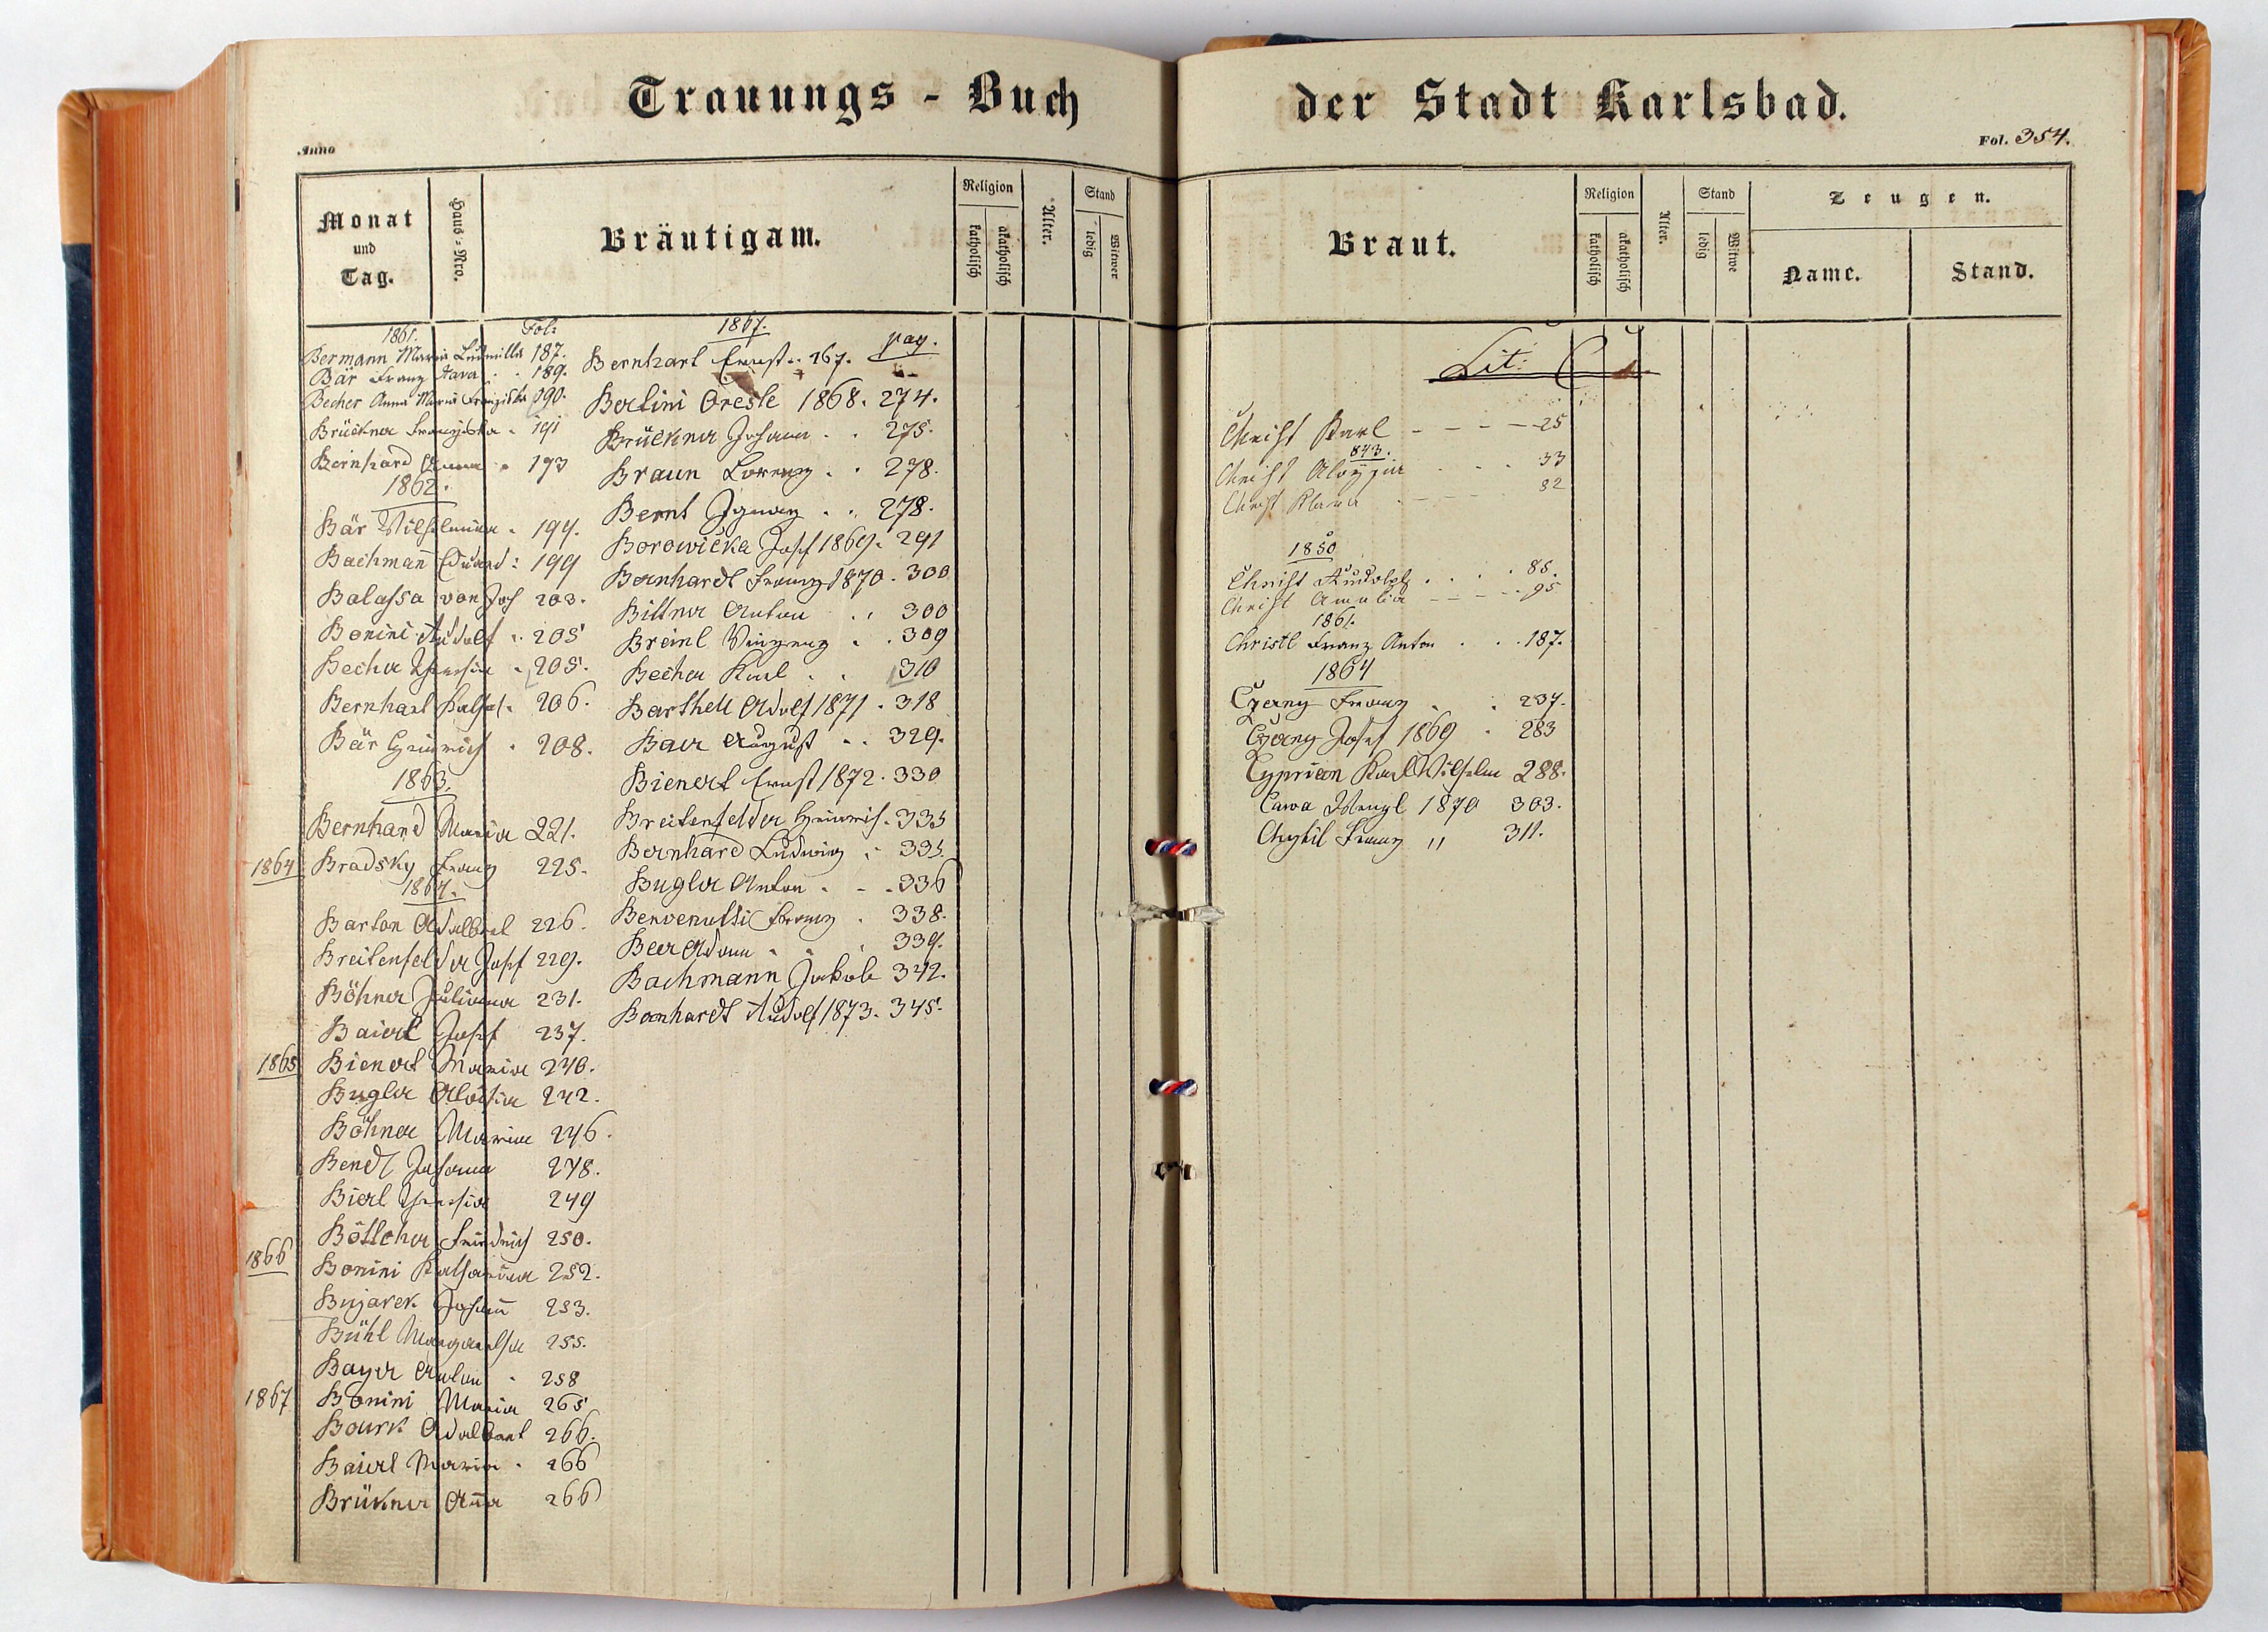 Trauungs - Buch
der Stadt Karlsbad.
Anno
Fol. 354.
Monat
und
Tag.
Haus=Nro.
Bräutigam.
Religion
katholisch
akatholisch
Alter.
Stand
ledig
Witwer
Braut.
Religion
katholisch
akatholisch
Alter.
Stand
ledig
Witwe
Zeugen.
Name.
Stand.
1861. Fol:
Bermann Maria Ludmilla 187.
Bär Franz . . 189.
Becher Anna Maria Franziska 190.
Brückner Franziska . 191
Bernhard Anna . 193
1862.
Bär Wilhelmina . 194.
Bachmañ Eduard : 199
Balassa von Jos 203.
Bonini Rudolf . 205
Becher Theresia . 205.
Bernhart 206.
Bär Heinrich . 208.
1863.
Bernhard Maria 221.
1864 Bradsky Franz 225.
1864.
Barton Adalbert 226.
Breitenfelder Josef 229.
Böhner Juliana 231.
Baierl Josef 237.
1865 Bienert Maria 240.
Bugler Aloisia 242.
Böhner Maria 246.
Bendl Johanna 248.
Bierl Theresia 249
Böttcher Friedrich 250.
1866 Bonini Katharina 252.
Bujarek Johañ 253.
Bühl Margaretha 255.
Bayer Anton . 258
1867 Bonini Maria 265
Bourk Adalbert 266.
Baierl Maria . 266
Brükner Aña 266
1867. pag.
Bernhart Ernst . . 267.
Bertini Oreste 1868. 274.
Brückner Johann . . 275.
Braun Lorenz . . 278.
Bernt Ignaz . . 278.
Borowička Josef 1869. 291
Bernhardt Franz 1870. 300
Bittner Anton . . 300
Breinl Vinzenz . . 309
Becher Karl . . 310
Barthell Adolf 1871 . 318
Baier August . . 329.
Bienert Ernst 1872. 330
Breitenfelder Heinrich. 335
Bernhard Ludwig . 335.
Bugler Anton . - . 336
Benvenutti Franz . 338.
Beer Adam . . 339.
Bachmann Jakob 342.
Bernhardt Rudolf 1873. 345.
Lit: C
Christ Karl - - - - 25
843.
Christ Aloysia . . . 33
Christ Klara . - - - 82
1850
Christ Rudolph . . . . 85.
Christ Amalia - - - . . 95
1861.
Christl Franz Anton . . . 187.
1864
Czerny Franz . . 237.
Czerny Josef 1869 . 283
Cyprian Karl Wilhelm 288.
Cawa Wenzl 1870 303.
Chytil Franz " 311.